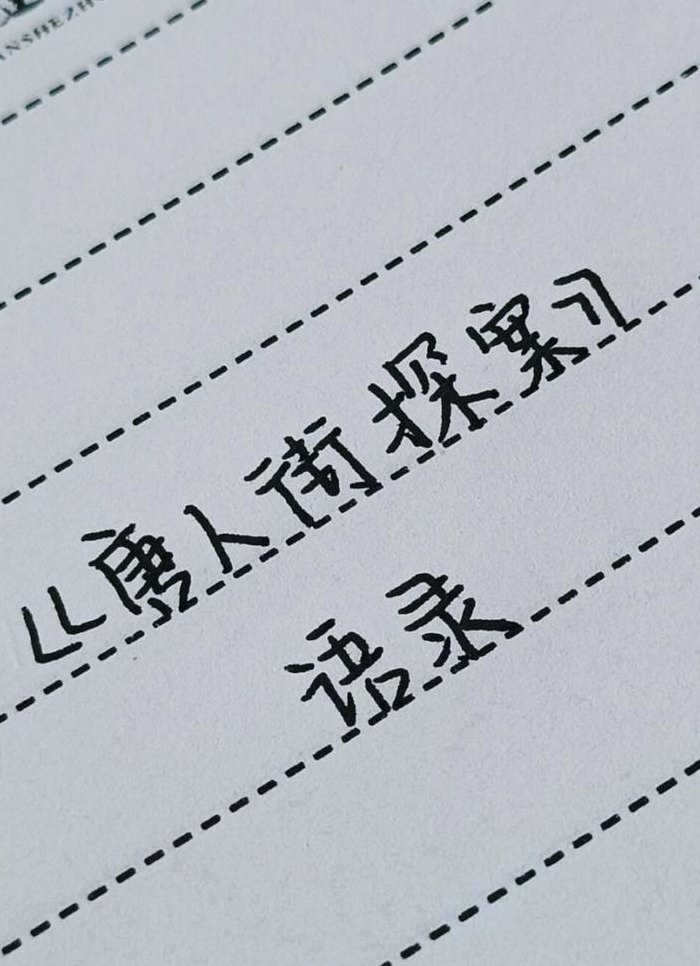 《唐人街探案》
语录